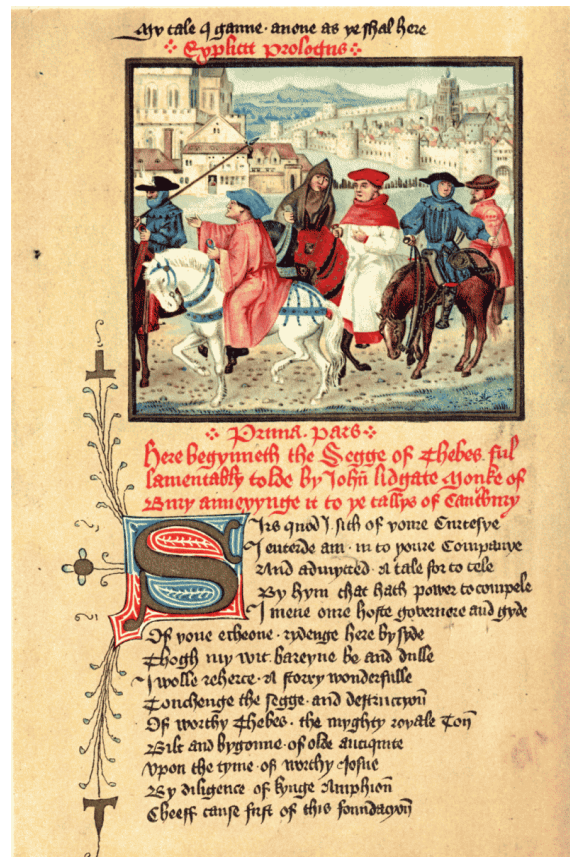 My tale I ganne · anone as ye shal here
Explicit prologus
Prima · pars
Here begynneth the Segge of Thebes ful
lamentably tolde by Johñ lidgate Monke of
Bury annexynge it to ye tallys of Cantbury
Sirs quod I sith of youre Curtesye
I enterde am · in to youre Companye
And admytted · A tale for to tele
By hym that hath power to compele
I mene oure hoste governere and gyde
Of youe echeone · rydenge here by syde
Thogh my wit · bareyne be and dulle
I wolle reherce · A storry wonderfulle
Touchenge the segge · and destruccyoñ
Of worthy Thebes · the myghty royale Toñ
Bilt and bygonne · of olde antiquite
Vpon the tyme · of worthy Josue
By diligence of kynge Amphioñ
Cheeff cause first of this foundacyoñ